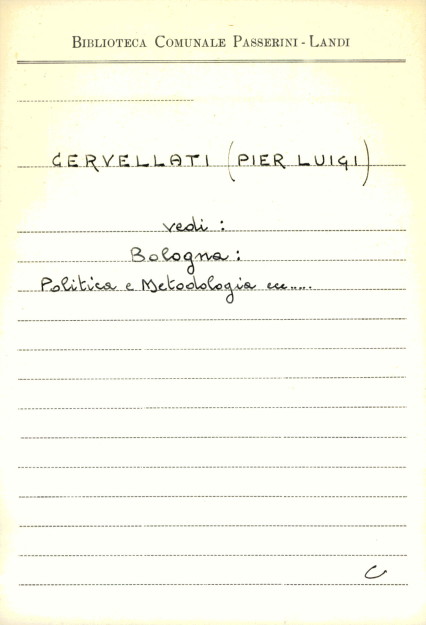 BIBLIOTECA COMUNALE PASSERINI - LANDI
CERVELLATI (PIER LUIGI)
vedi :
Bologna :
Politica e Metodologia ecc.....
C